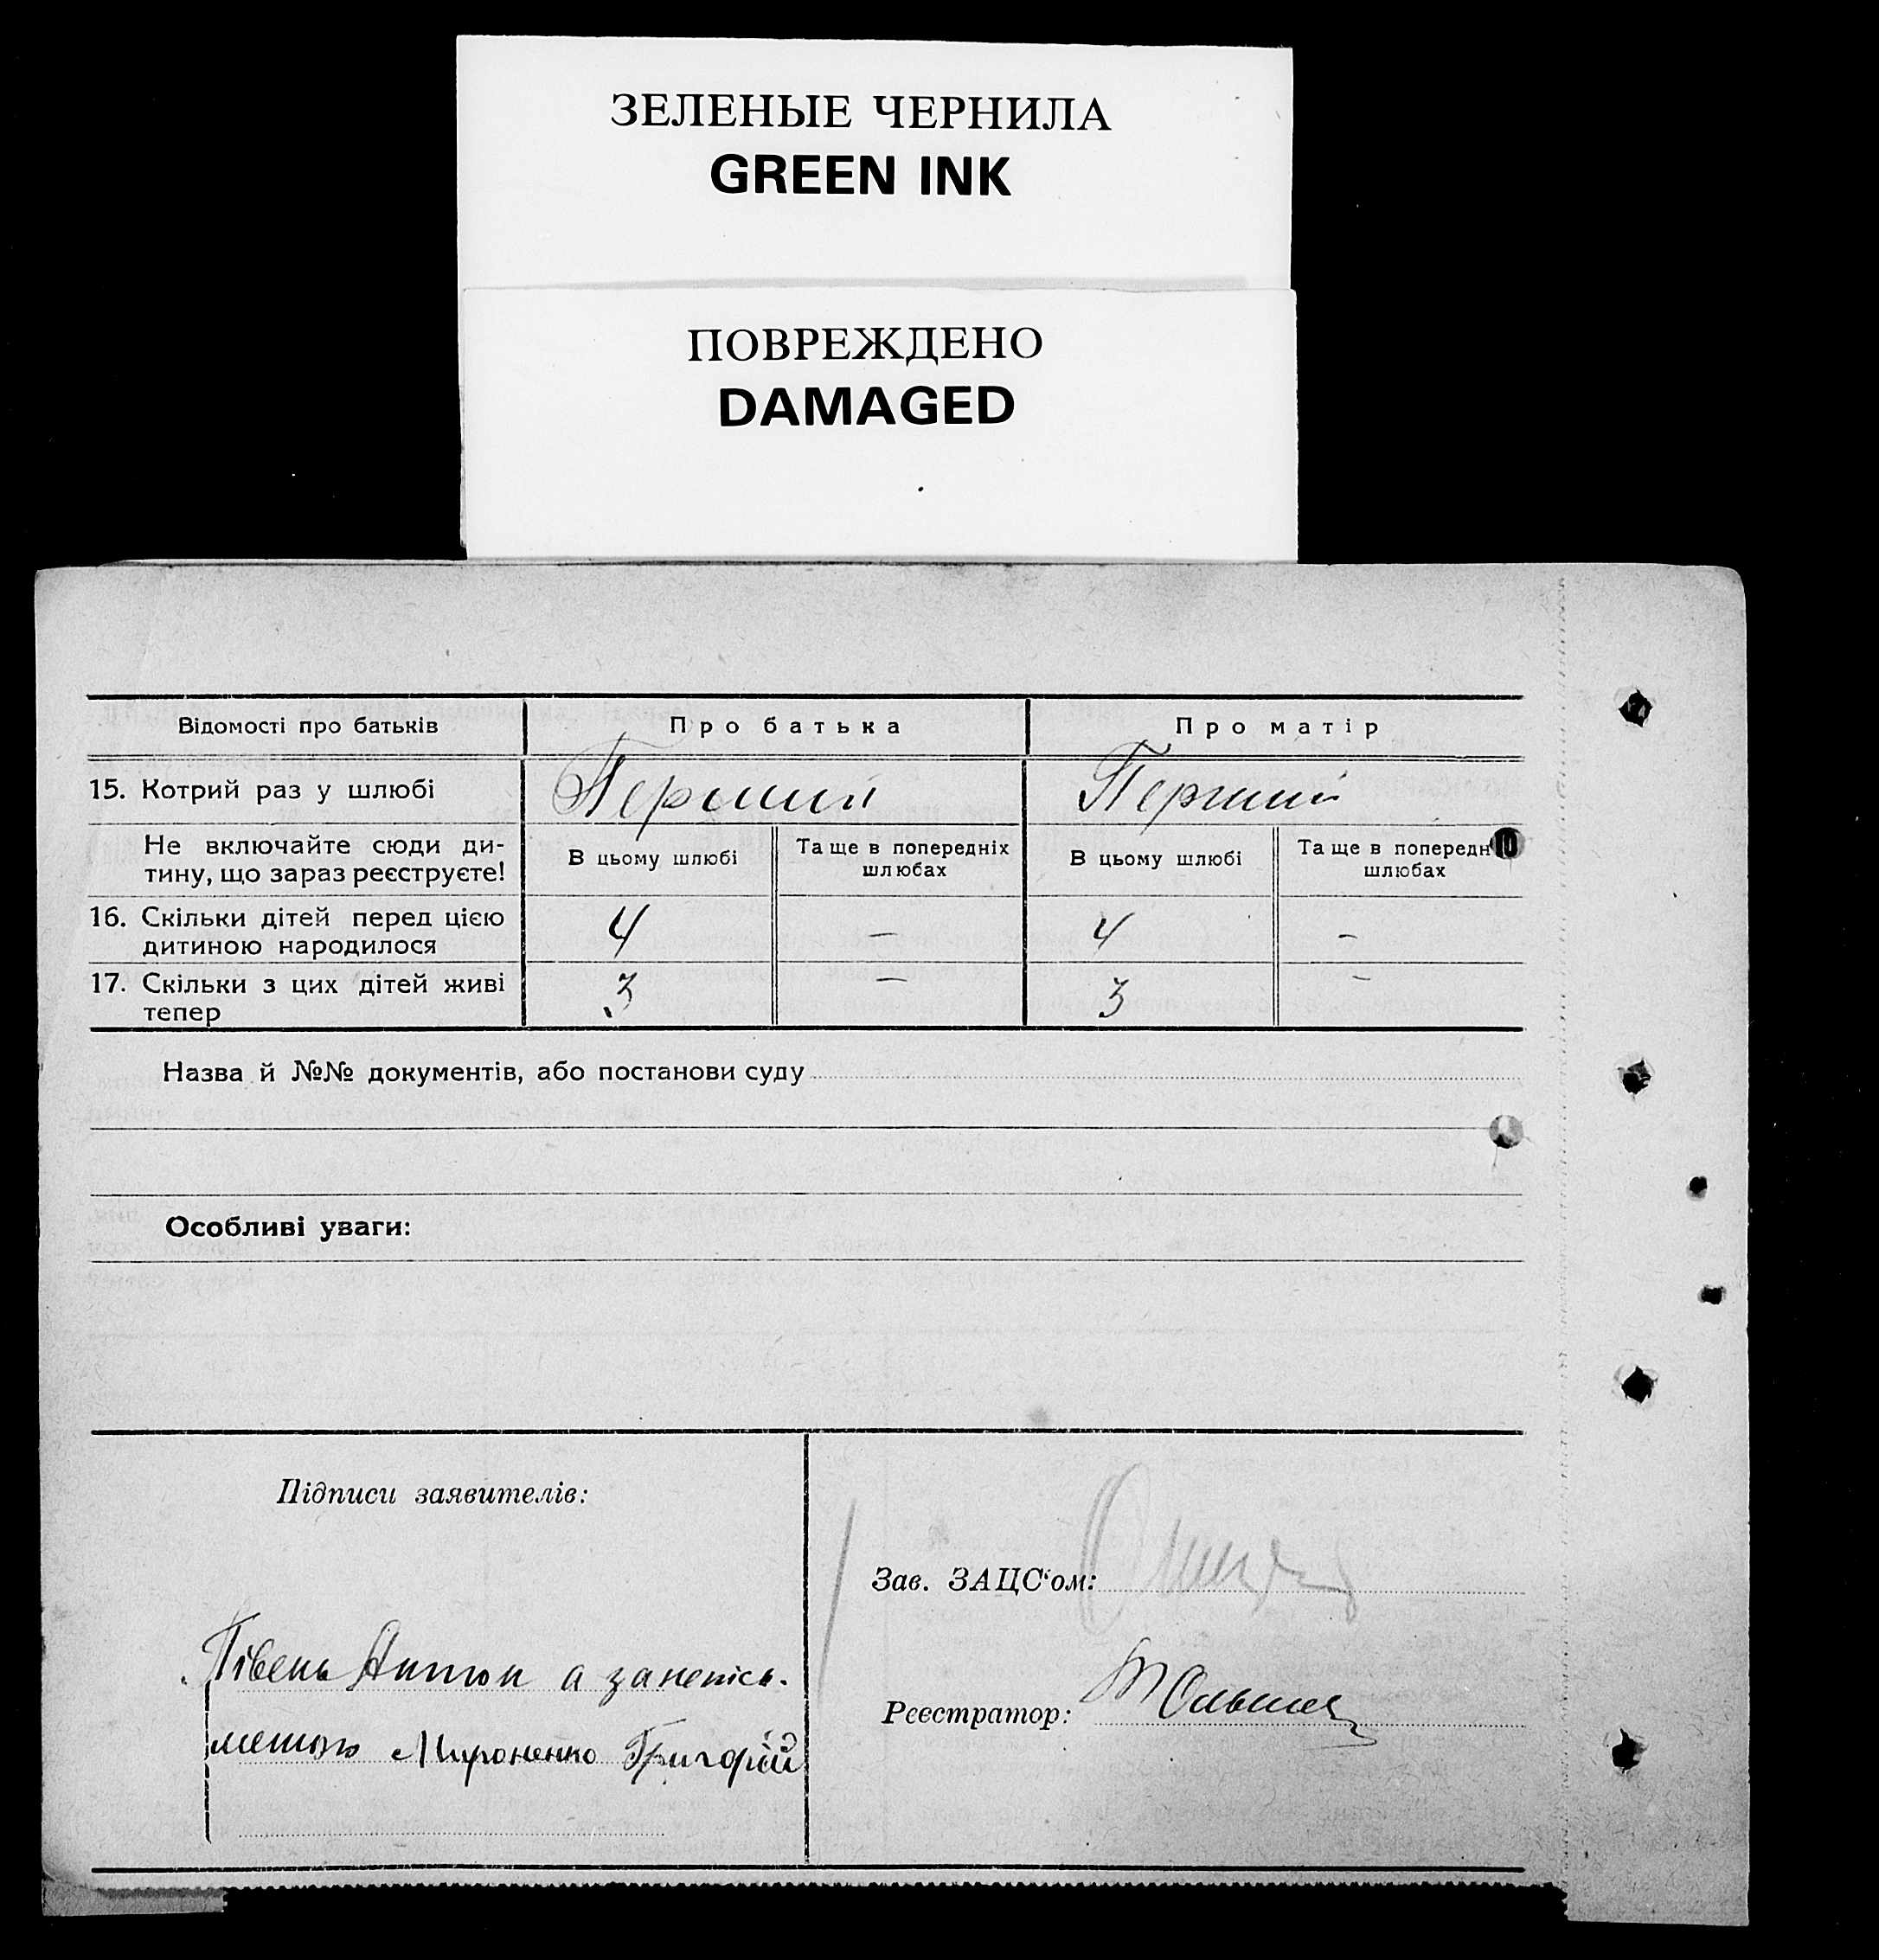 ЗЕЛЕНЫЕ ЧЕРНИЛА
GREEN INK
ПОВРЕЖДЕНО
DAMAGED
Відомості про батьків Про батька Про матір
15. Котрий раз у шлюбі Перший Перший
Не включайте сюди ди-
тину, що зараз реєструєте!
В цьому шлюбі Та ще в попередніх
шлюбах
В цьому шлюбі Та ще в попередн
шлюбах
16. Скільки дітей перед цією
дитиною народилося 4 — 4 —
17. Скільки з цих дітей живі
тепер 3 — 3 —
Назва й №№ документів, або постанови суду
Особливі уваги:
Підписи заявителів:
Зав. ЗАЦС'ом:
Півень Антон а за непісь.
меного Мироненко Григорій
Реєстратор: